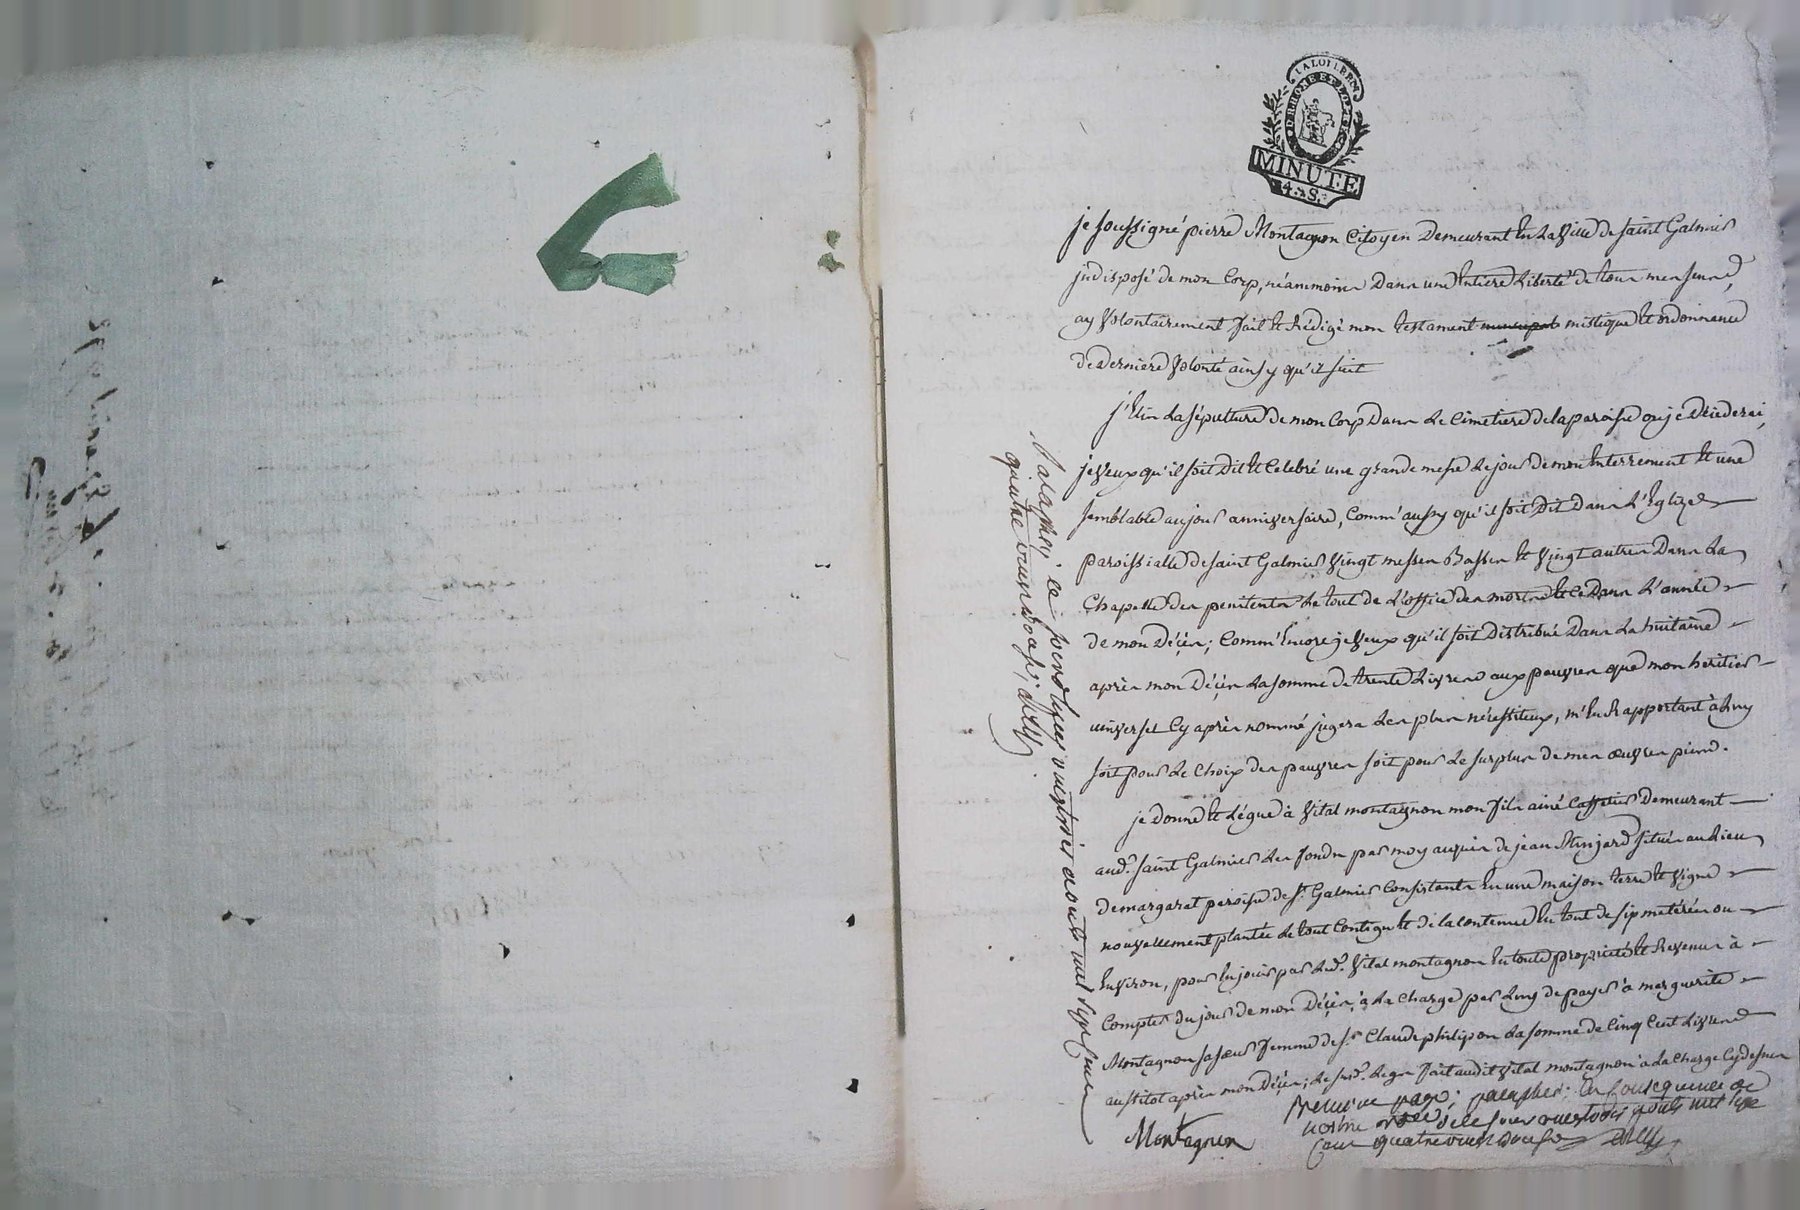 LA LOI LE ROI
D. RHONE ET LOIRE
MINUTE
4. S.
je soussigné pierre Montagnon Citoyen Demeurant En La Ville de saint Galmier
jndisposé de mon Corp, néanmoins Dans une Entiere Liberté de tous mes sens,
ay Volontairement fait Et Rédigé mon testament mistique Et ordonnance
de derniere Volonté ainsy qu'il suit
j'Elis La sépulture de mon Corp Dans Le Cimetiere de la paroisse ou je Déciderai,
je Veux qu'il soit Dit Et Celebré une grande messe Le jour de mon Enterrement Et une
semblable au jour anniversaire, Comm' aussy qu'il soit Dit Dans L'Eglize
paroissialle de saint Galmier Vingt messes Basses Et Vingt autres Dans La
Chapelle des penitents Le tout de L'office des morts Et Ce Dans L'année
de mon Décès; Comm' Encore je Veux qu'il soit Distribué Dans La huitaine
après mon Décès La somme de trente Livres aux pauvres que mon heritier
universel Cy après nommé jugera Les plus nécessiteux, m'En Rapportant à Luy
soit pour Le Choix des pauvres soit pour Le surplus de mes œuvres pies.
je donne Et Légue à Vital montagnon mon fils ainé Caffetier Demeurant
aud. saint Galmier Les fonds par moy acquis de jean situés au Lieu
de margaret paroisse de St. Galmier Consistants En une maison terre Et Vigne
nouvellement plantée Le tout Contigu Et de la Contenue En tout de six metérées ou
Environ, pour En jouir par Led. Vital montagnon En toute propriété Et Revenus à
Compter du jour de mon Décès, à La Charge par Luy de payer à marguerite
Montagnon sa sœur femme de Sr. Claude philipon La somme de Cinq Cent Livres
aussitot après mon Décès; Le susd. Legs fait audit Vital montagnon à La Charge Cy dessus
Montagnon
premiere page; paraphée; En Consequence de
notre de ce jour vuit sept
Cent quatre vint douse
paraphé; ce jourd'huy vint trois aoust mil sept Cent
quatre vint douse;